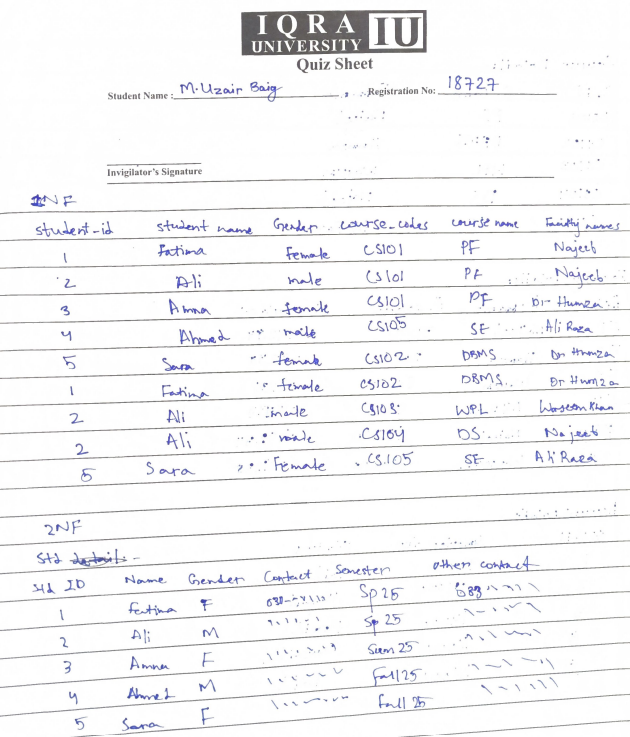 IQRA
UNIVERSITY IU
Quiz Sheet
Student Name: M.Uzair Baig Registration No: 18727
Invigilator's Signature
1NF
student-id student name Gender course-codes course name Faculty names
1 Fatima female CS101 PF Najeeb
2 Ali male CS101 PF Najeeb
3 Amna female CS101 PF Dr Humza
4 Ahmed male CS105 SE Ali Raza
5 Sara female CS102 DBMS Dr Humza
1 Fatima female CS102 DBMS Dr Humza
2 Ali male CS103 WPL Waseem Khan
2 Ali male CS104 DS Najeeb
5 Sara Female CS.105 SE Ali Raza
2NF
Std details -
Std ID Name Gender Contact Semester other contact
1 Fatima F Sp 25
2 Ali M Sp 25
3 Amna F Sum 25
4 Ahmed M Fall 25
5 Sara F Fall 25